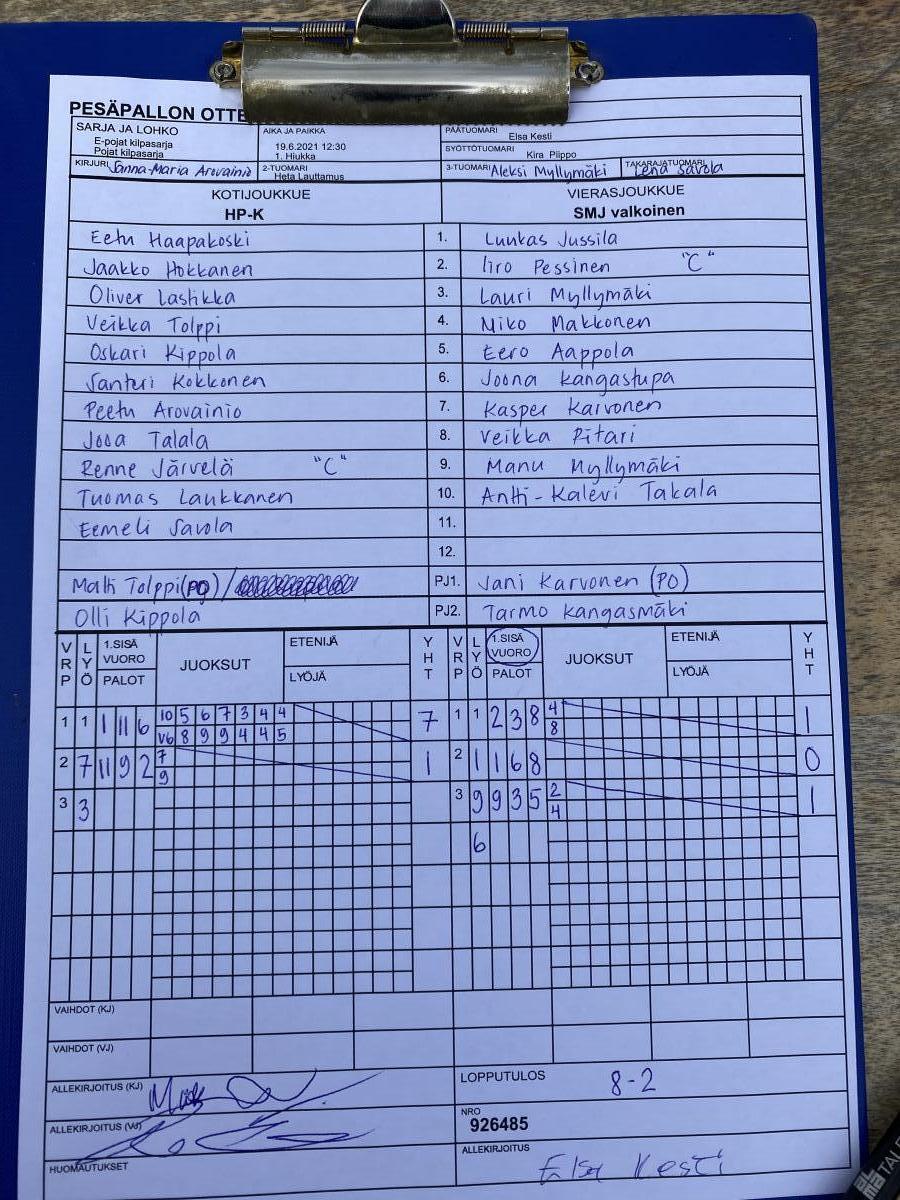 PESÄPALLON OTTE
SARJA JA LOHKO
E-pojat kilpasarja
Pojat kilpasarja
AIKA JA PAIKKA
19.6.2021 12:30
1. Hiukka
PÄÄTUOMARI
Elsa Kesti
SYÖTTÖTUOMARI
Kira Piippo
KIRJURI Sanna-Maria Arovainio
2-TUOMARI
Heta Lauttamus
3-TUOMARI Aleksi Myllymäki
TAKARAJATUOMARI
Lena Savola
KOTIJOUKKUE
HP-K
VIERASJOUKKUE
SMJ valkoinen
Eetu Haapakoski 1. Luukas Jussila
Jaakko Hokkanen 2. Iiro Pessinen "C"
Oliver Lastikka 3. Lauri Myllymäki
Veikka Tolppi 4. Niko Makkonen
Oskari Kippola 5. Eero Aappola
Santeri Kokkonen 6. Joona Kangastupa
Peetu Arovainio 7. Kasper Karvonen
Jooa Talala 8. Veikka Pitari
Renne Järvelä "C" 9. Manu Myllymäki
Tuomas Laukkanen 10. Antti-Kalevi Takala
Eemeli Savola 11.
12.
Matti Tolppi (PO) / PJ1. Jani Karvonen (PO)
Olli Kippola PJ2. Tarmo Kangasmäki
VRP LYÖ 1.SISÄ VUORO PALOT JUOKSUT ETENIJÄ LYÖJÄ YHT VRP LYÖ 1.SISÄ VUORO PALOT JUOKSUT ETENIJÄ LYÖJÄ YHT
1 1 1 11 6 10 5 6 7 3 4 4 7 1 1 2 3 8 4 1
V6 8 9 9 4 4 5 8
2 7 11 9 2 7 1 2 1 1 6 8 0
9
3 3 3 9 9 3 5 2 1
4
6
VAIHDOT (KJ)
VAIHDOT (VJ)
ALLEKIRJOITUS (KJ)
LOPPUTULOS 8-2
ALLEKIRJOITUS (VJ)
NRO
926485
HUOMAUTUKSET
ALLEKIRJOITUS
Elsa Kesti
TALE